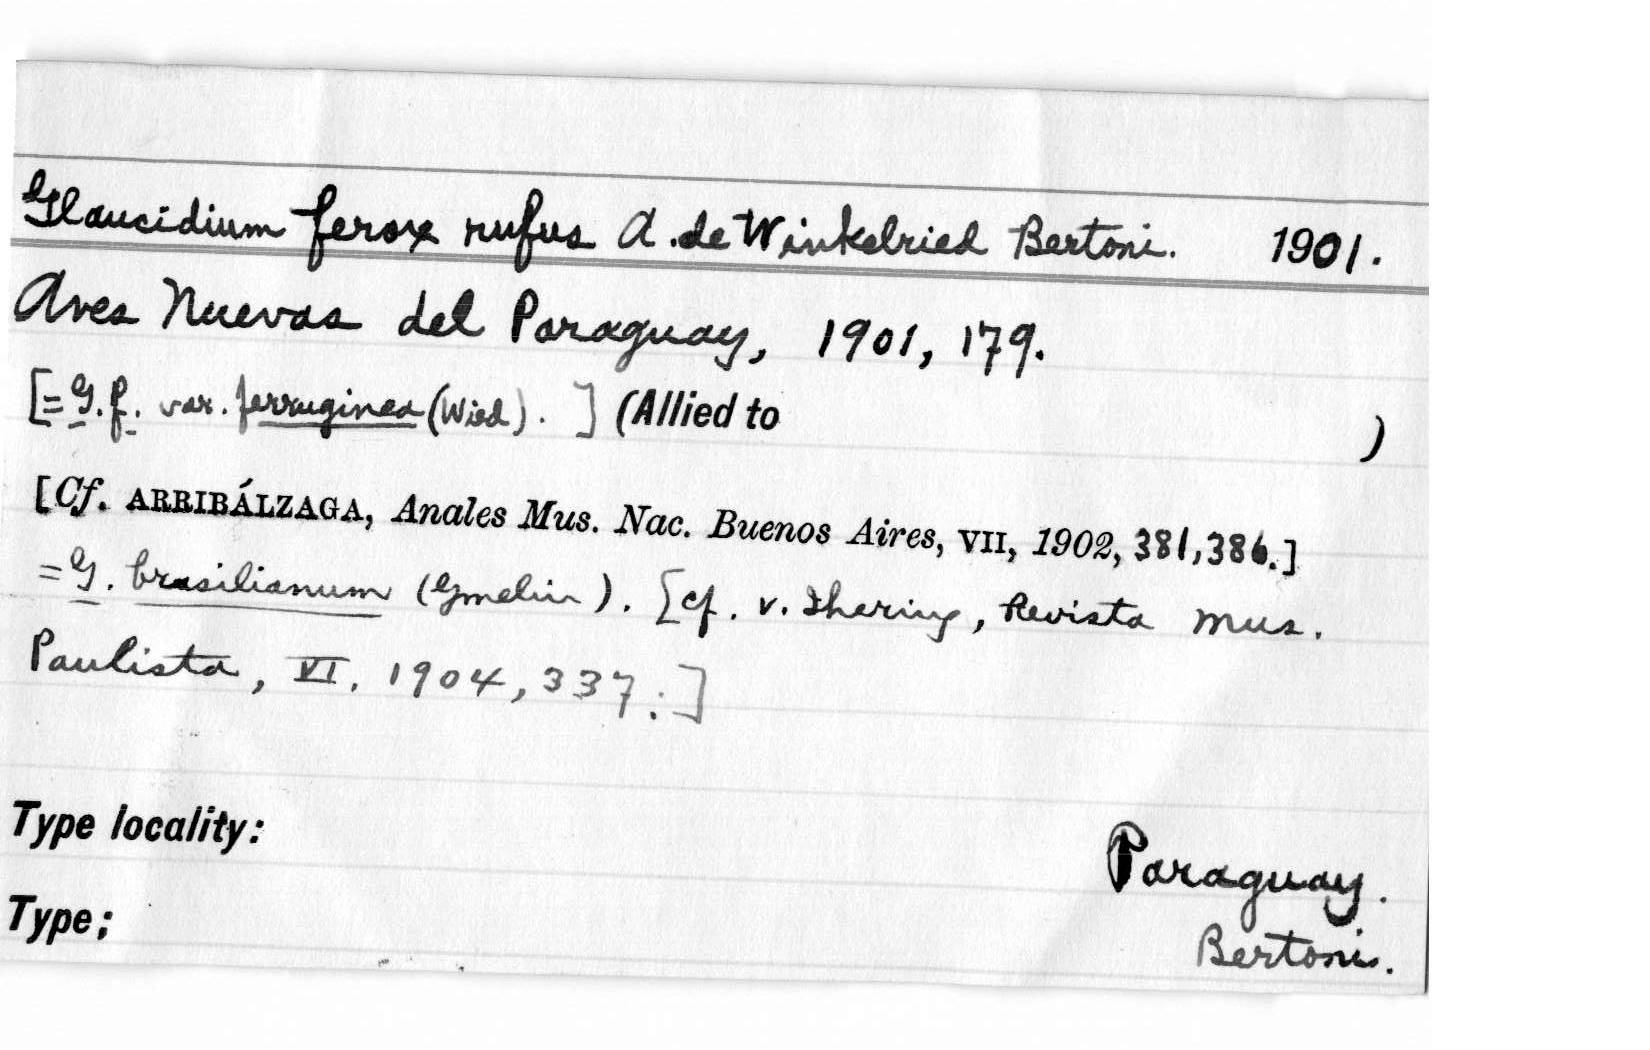 Glaucidium ferox rufus A. de Winkelried Bertoni. 1901.
Aves Nuevas del Paraguay, 1901, 179.
[= G. f. var. ferruginea (Wied). ] (Allied to )
[Cf. ARRIBÁLZAGA, Anales Mus. Nac. Buenos Aires, VII, 1902, 381, 386.]
= G. brasilianum (Gmelin). [cf. v. Ihering, Revista Mus.
Paulista, VI. 1904, 337.]
Type locality: Paraguay.
Type; Bertoni.